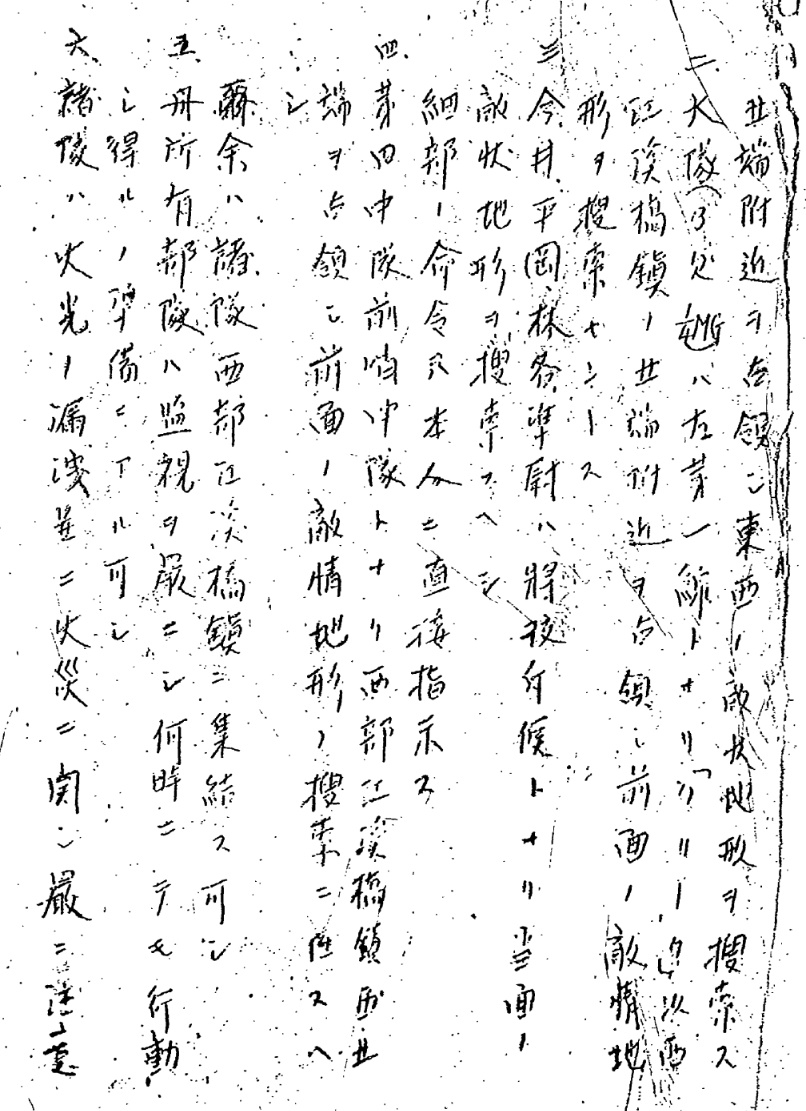 北端附近ヲ占領シ東西ノ敵状地形ヲ捜索ス
二、大隊ハ左第一線トナリ「クリーク」以西
江渓橋鎮ノ北端附近ヲ占領シ前面ノ敵情地
形ヲ捜索セントス
三、今井、平岡、林各準尉ハ将校斥候トナリ当面ノ
敵状地形ヲ捜索スヘシ
細部ノ命令ハ本人ニ直接指示ス
四、第四中隊前哨中隊トナリ西部江渓橋鎮西北
端ヲ占領シ前面ノ敵情地形ノ捜索ニ任スヘ
シ
爾余ハ諸隊西部江渓橋鎮ニ集結ス可シ
五、所有部隊ハ監視ヲ厳ニシ何時ニテモ行動
シ得ルノ準備ニアル可シ
六、諸隊ハ火光ノ漏洩並ニ火災ニ関シ厳ニ注意